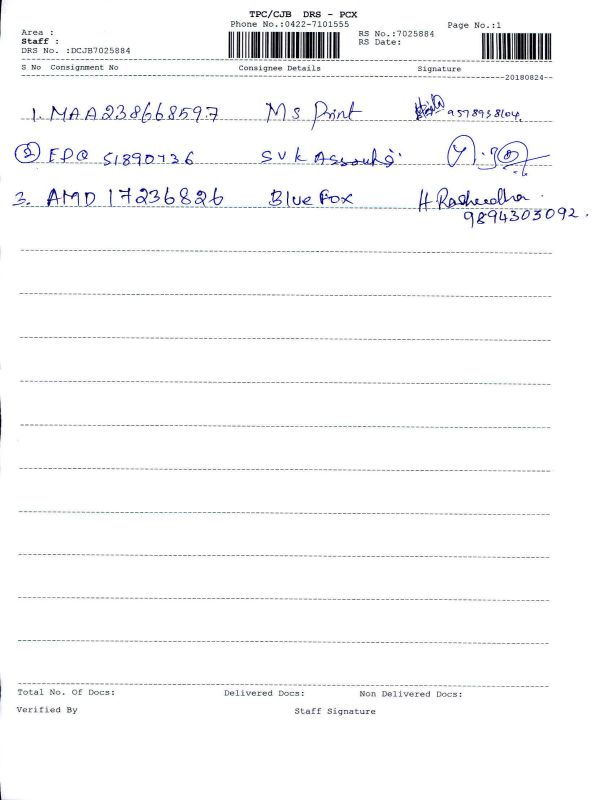 TPC/CJB DRS - PCX
Phone No.:0422-7101555 Page No.:1
Area : RS No.:7025884
Staff : RS Date:
DRS No. :DCJB7025884
S No Consignment No Consignee Details Signature
20180824
1. MAA238668597 Ms Print 9578938604
2 EPQ 51890736 SVK
3. AMD 17236826 Blue Fox H Rasheedha
9894303092.
Total No. Of Docs: Delivered Docs: Non Delivered Docs:
Verified By Staff Signature